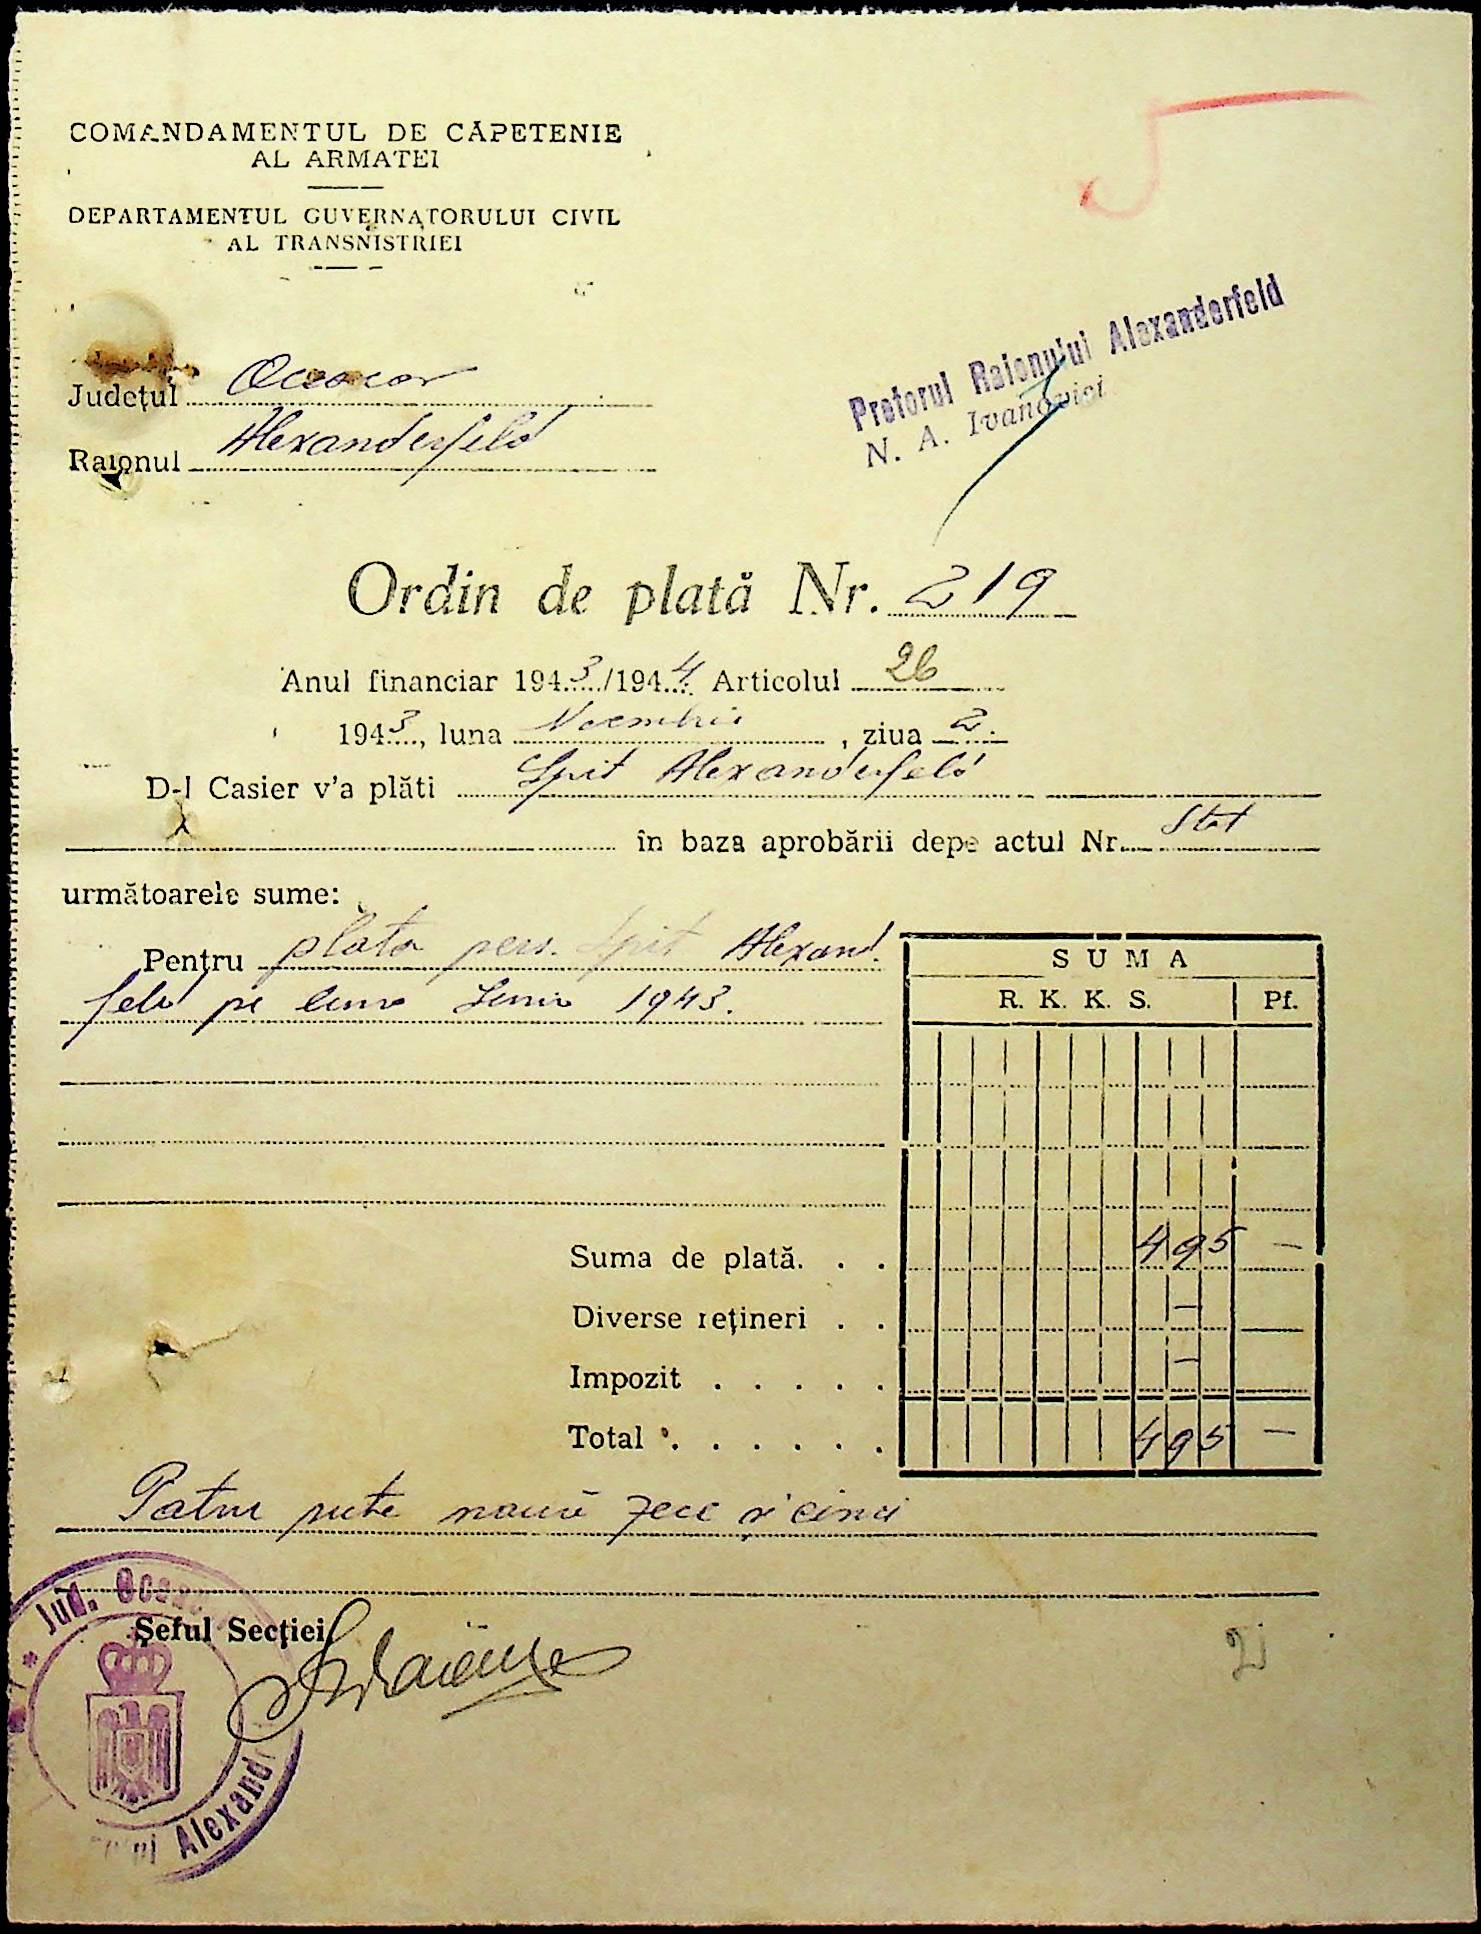 COMANDAMENTUL DE CĂPETENIE
AL ARMATEI
DEPARTAMENTUL GUVERNATORULUI CIVIL
AL TRANSNISTRIEI
Județul Oceacov
Raionul Alexanderfeld
Pretorul Raionului Alexanderfeld
N. A. Ivanovici
Ordin de plată Nr. 219
Anul financiar 1943/1944 Articolul 26
1943, luna Noembrie, ziua 2
D-l Casier v'a plăti Spit Alexanderfeld
în baza aprobării depe actul Nr. Stat
următoarele sume:
Pentru plata pers. Spit Alexand.
feld pe luna Iunie 1943.
SUMA
R. K. K. S. Pf.
Suma de plată. . . 495 —
Diverse rețineri . . —
Impozit . . . . . —
Total . . . . . . 495 —
Patru sute nouă zeci și cinci
Șeful Secției
* Jud. Ocea
Alexand
2